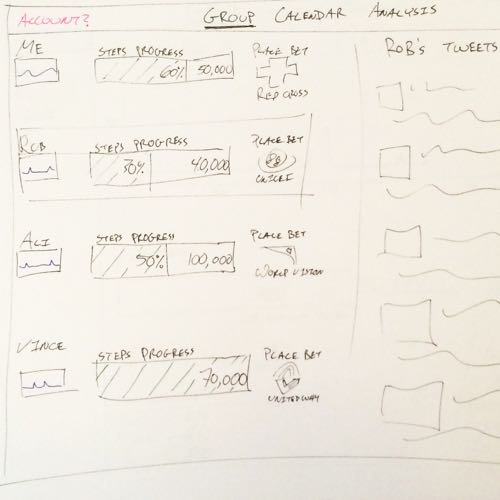 ACCOUNT?
GROUP CALENDAR ANALYSIS
ME
STEPS PROGRESS
60% 50,000
PLACE BET
RED CROSS
ROB'S TWEETS
ROB
STEPS PROGRESS
30% 40,000
PLACE BET
UNICEF
ALI
STEPS PROGRESS
50% 100,000
PLACE BET
WORLD VISION
VINCE
STEPS PROGRESS
70,000
PLACE BET
UNITED WAY